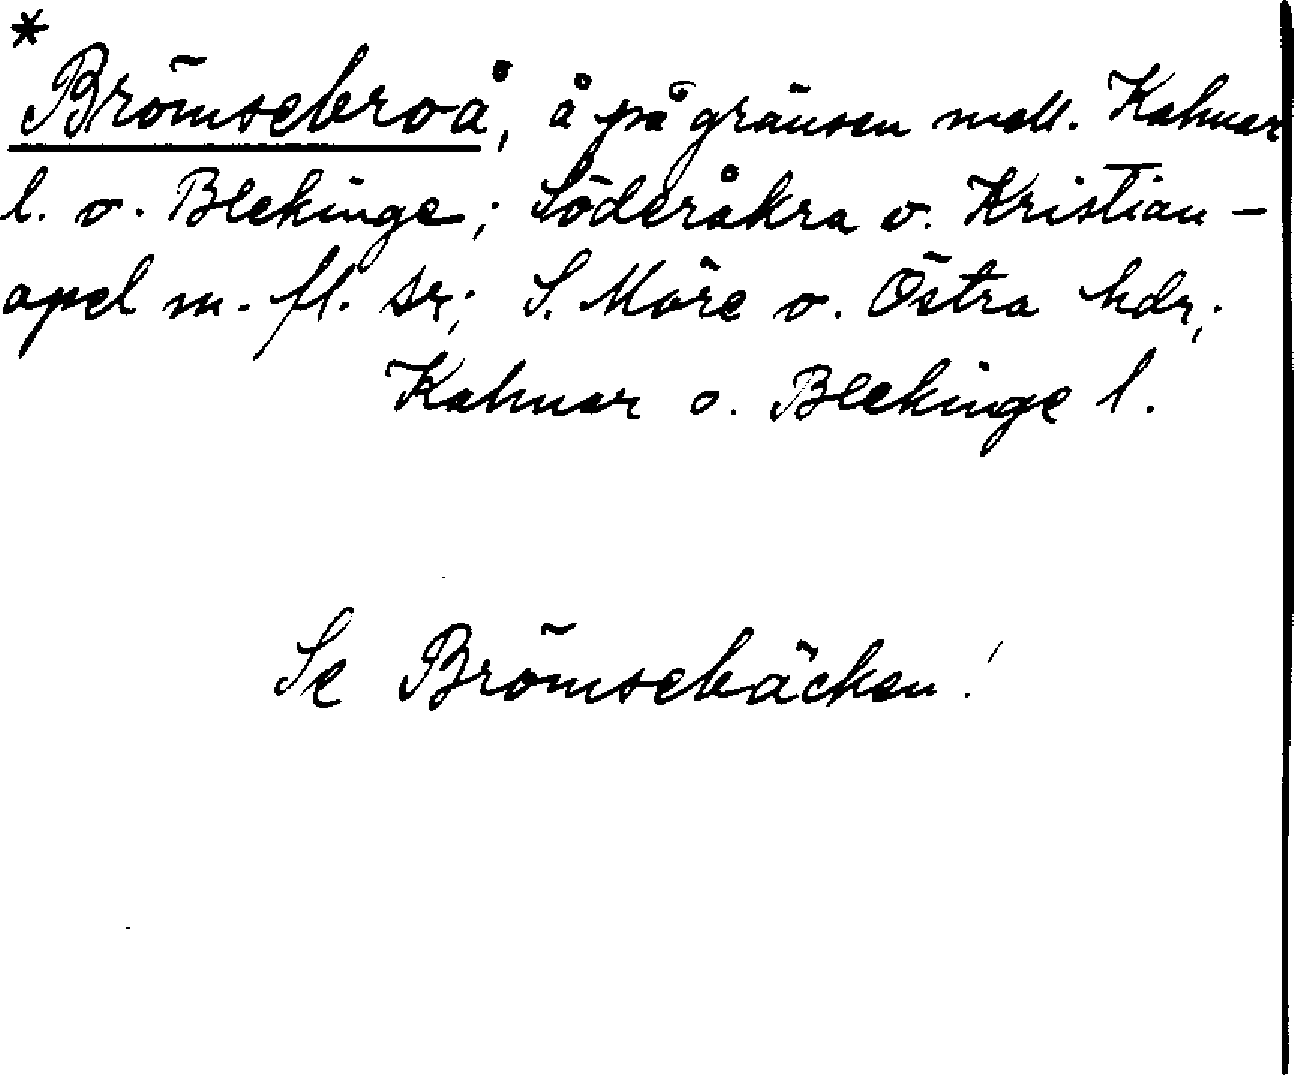 *
Brömsebroå, å på gränsen mell. Kalmar
l. o. Blekinge; Söderåkra o. Kristian-
opel m. fl. sr; S. Möre o. Östra hdr;
Kalmar o. Blekinge l.
Se Brömsebäcken!